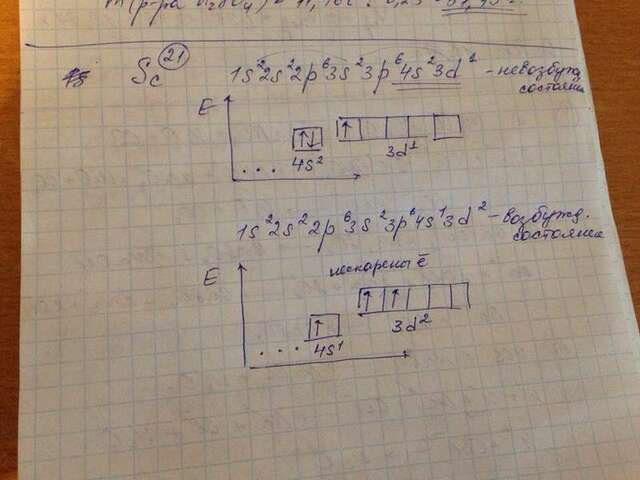 Sc 21 1s²2s²2p⁶3s²3p⁶4s²3d¹ - невозбужд.
состояние
E
↑↓ ↑
... 4s² 3d¹
1s²2s²2p⁶3s²3p⁶4s¹3d² - возбужд.
состояние
E неспарены ē
↑ ↑ ↑
... 4s¹ 3d²